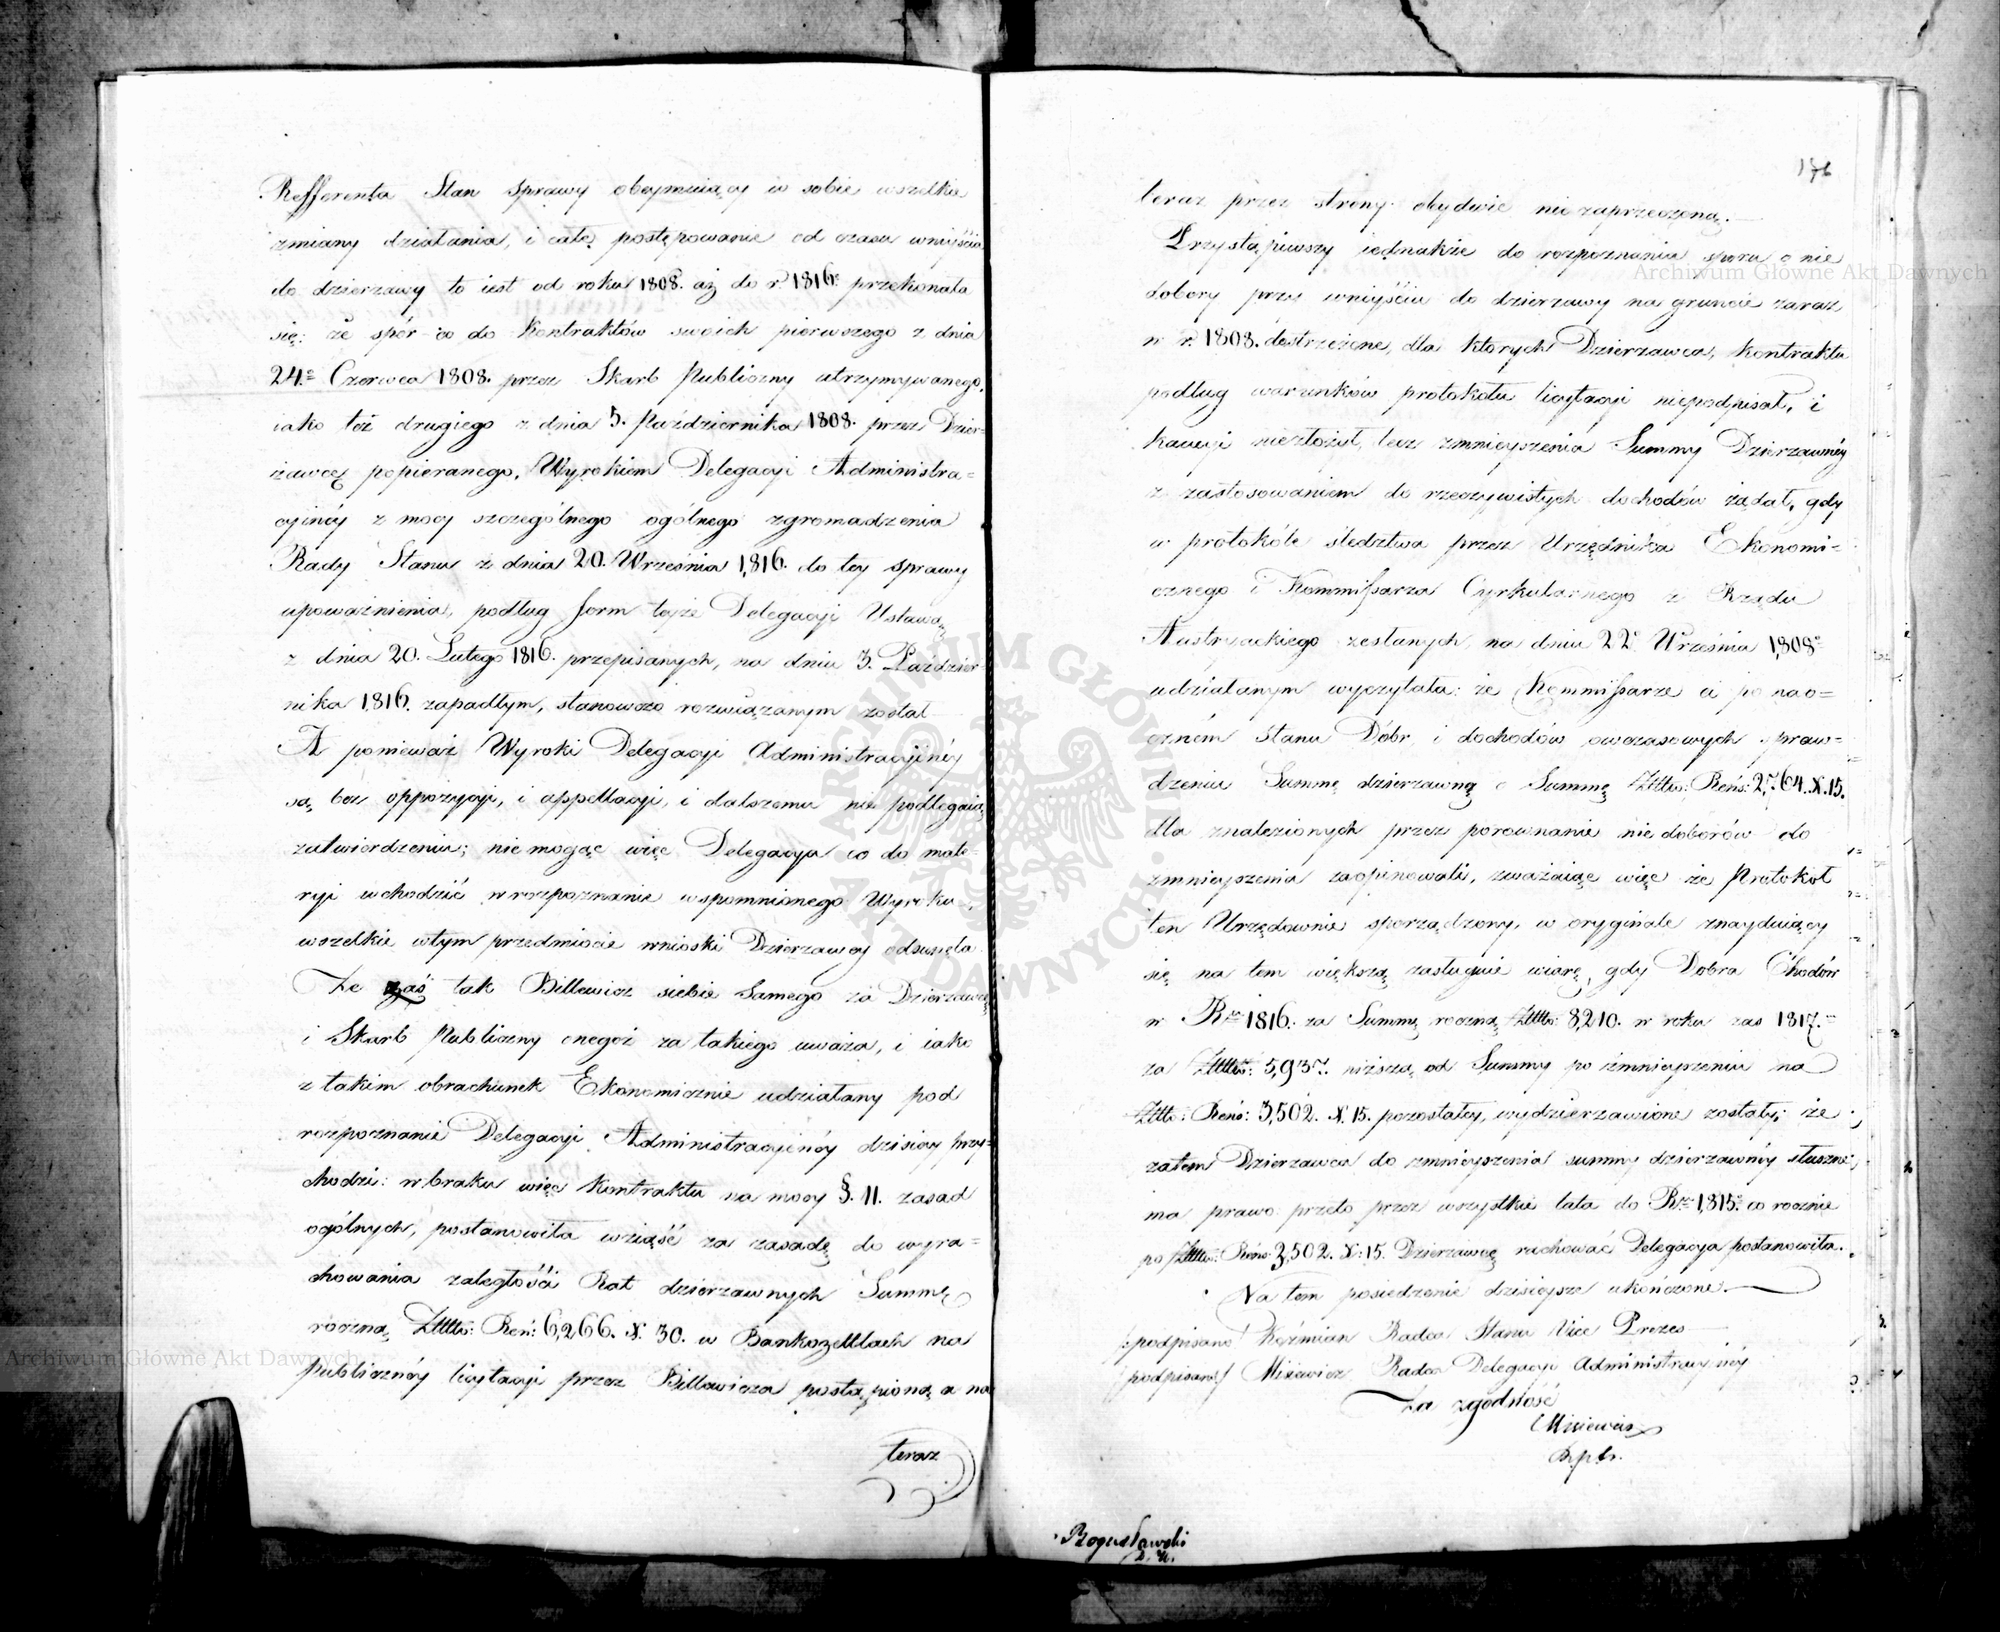 Refferenta Stan Sprawy obeymuiący w sobie wszelkie
zmiany działania, i całe postępowanie od czasu wniyścia
do dzierzawy to iest od roku 1808. aż do r. 1816º przekonała
się: że spór co do Kontraktów swoich pierwszego z dnia
24º Czerwca 1808. przez Skarb Publiczny utrzymywanego,
iako też drugiego z dnia 5. Października 1808. przez Dzier-
żawcę popieranego, Wyrokiem Delegacyi Administra=
cyinéy z mocy szczególnego ogólnego zgromadzenia
Rady Stanu z dnia 20. Września 1,816. do tey sprawy
upoważnienia, podług form teyże Delegacyi Ustawą
z dnia 20. Lutego 1816. przepisanych, na dniu 3. Paździer-
nika 1,816. zapadłym, stanowczo rozwiązanym został
A ponieważ Wyroki Delegacyi Administracyinéy
są bez oppozycyi, i appellacyi, i dalszemu nie podlegaią
zatwierdzeniu; nie mogąc więc Delegacya co do mate-
ryi wchodzić w rozpoznanie wspomnionego Wyroku,
wszelkie w tym przedmiocie wnioski Dzierzawcy odsunęła
Ze zaś tak Billewicz siebie Samego za Dzierzawcę
i Skarb Publiczny onegoż za takiego uważa, i iako
z takim obrachunek Ekonomicznie udziałany pod
rozpoznanie Delegacyi Administracyinéy dzisiay przy-
chodzi: w braku więc Kontraktu na mocy §. 11. zasad
ogólnych, postanowiła wziąść za zasadę do wyra=
chowania zaległości Rat dzierzawnych Summę
roczną Złłłło: Reń: 6,266. X. 30. w Bankozettlach na
Publicznéy licytacyi przez Billewicza postąpioną a na
teraz
176
teraz przez strony obydwie nie zaprzeczoną.
Przystąpiwszy iednakże do rozpoznania sporu o nie
dobory przy wniyściu do dzierzawy na gruncie zaraz
w r. 1808. dostrzeżone, dla których Dzierzawca, kontraktu
podług warunków protokołu licytacyi niepodpisał, i
kaucyi niezłożył, lecz zmnieyszenia Summy Dzierzawnéy
z zastosowaniem do rzeczywistych dochodów żądał, gdy
w protokóle śledztwa przez Urzędnika Ekonomi=
cznego i Kommissarza Cyrkularnego z Rządu
Austryackiego zesłanych, na dniu 22º Września 1,808º
udziałanym wyczytała: że Kommissarze ci po nao=
cznem Stanu Dóbr i dochodów owczasowych spraw=
dzeniu Summę dzierzawną o Summę Złłło: Reńs: 2,764. X. 15.
dla znalezionych przez porownanie niedoborów do
zmnieyszenia zaopinowali, zważaiąc więc że Protokół
ten Urzędownie sporządzony, w oryginale znayduiący
się, na tem większą zasługuie wiarę, gdy Dobra Chodów
w Rº 1816. za Summę roczną Złłłło: 8,210. w roku zas 1817.=
za Złłłło: 5,937. niższą, od Summy po zmnieyszeniu na
Złło: Reńs: 3,502. X. 15. pozostałey, wydzierzawione zostały; że
zatem Dzierzawca do zmnieyszenia summy dzierzawnéy słuszne
ma prawo: przeto przez wszystkie lata do Rº 1,815º co rocznie
po Złłło: Reńs: 3,502. X: 15. Dzierzawcę rachować Delegacya postanowiła.
Na tem posiedzenie dzisieysze ukończone.
/podpisano/ Koźmian Radca Stanu Vice Prezes
/podpisano/ Misiewicz Radca Delegacyi Administracyinéy
Za zgodność
Misiewicz
Bogusławski